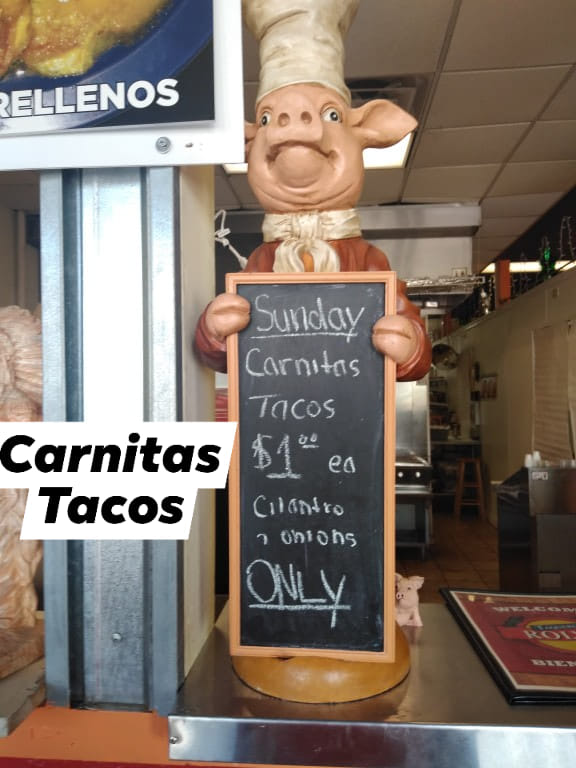 RELLENOS
Sunday
Carnitas
Tacos
$1.00 ea
Cilantro
onions
ONLY
Carnitas
Tacos
WELCOM
ROL
BIEN